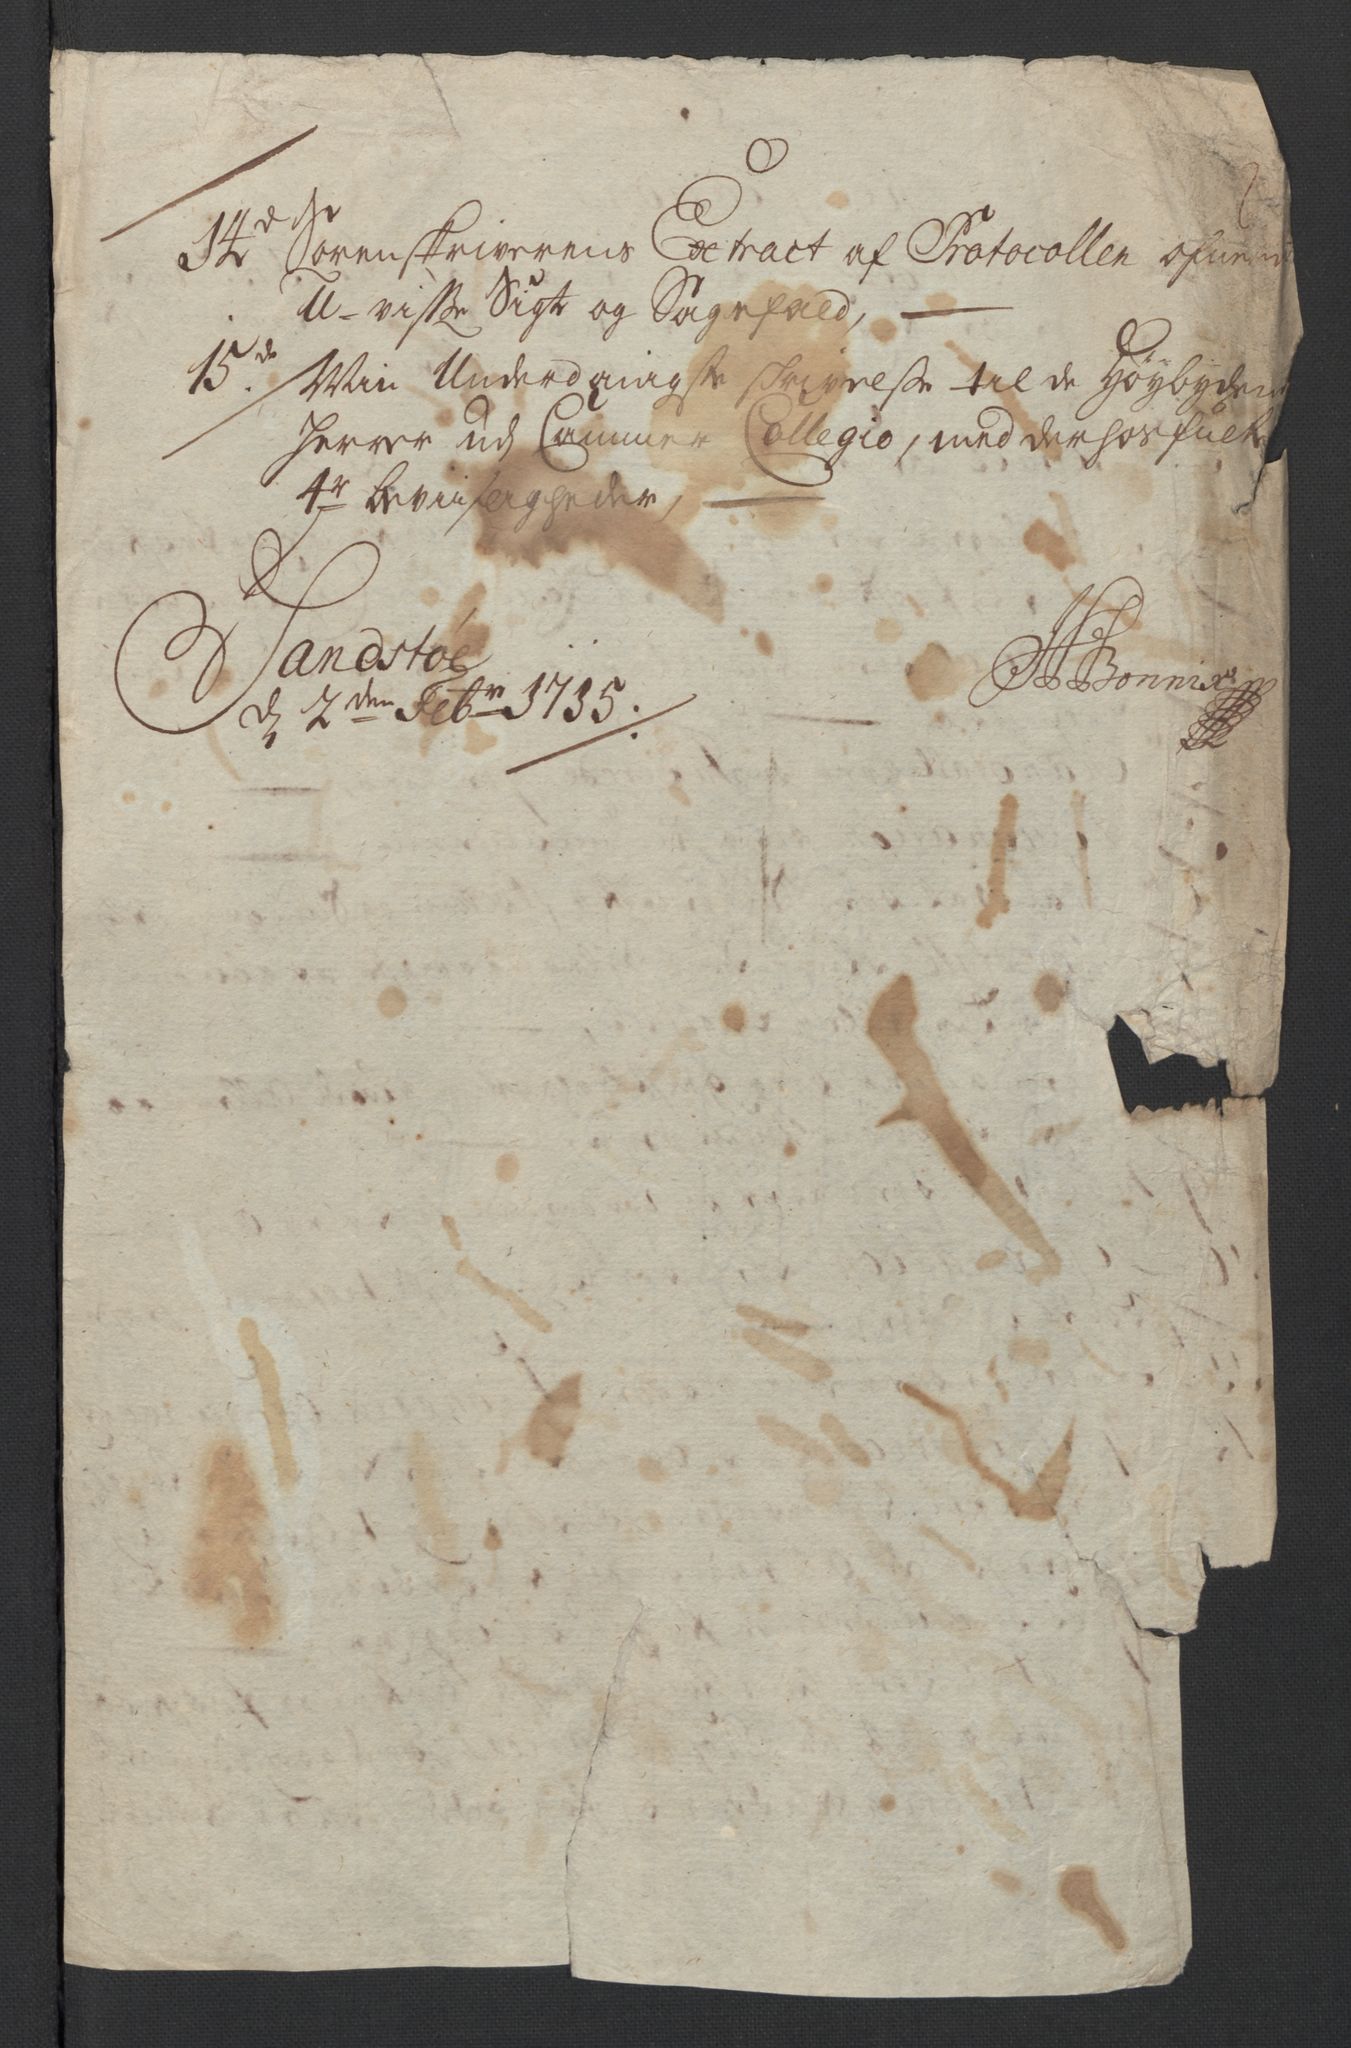 14de Sorenskriverens Extract af Protocollen ofver
U-visse Sigt og Sagefald,
15de. Min Underdanigste skrivelse til de Höybyden
Herrer udj Cammer Collegio, med derhos fulte
4r beviisligheder,
Sandstöe
d 2den Febr 1715.